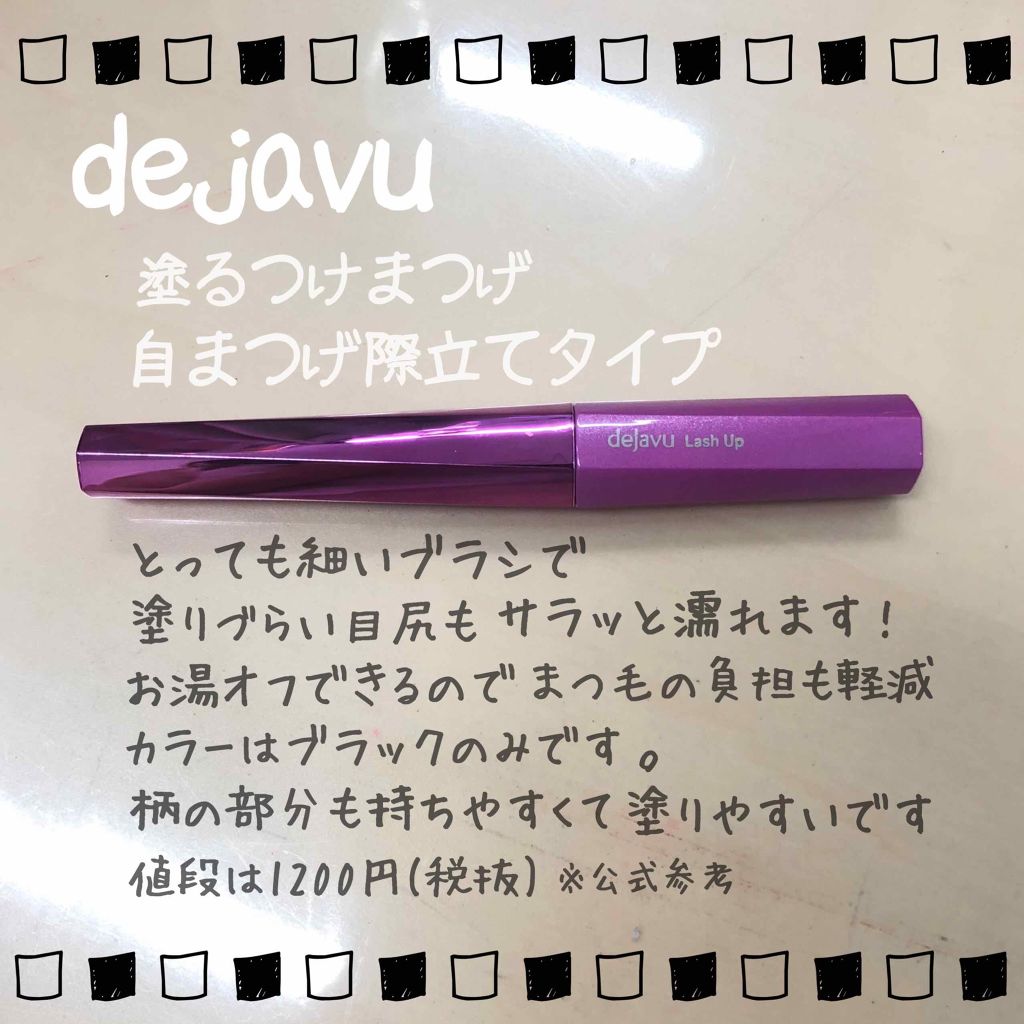 dejavu
塗るつけまつげ
自まつげ際立てタイプ
dejavu Lash Up
とっても細いブラシで
塗りづらい目尻もサラッと濡れます!
お湯オフできるのでまつ毛の負担も軽減
カラーはブラックのみです。
柄の部分も持ちやすくて塗りやすいです
値段は1200円(税抜) ※公式参考